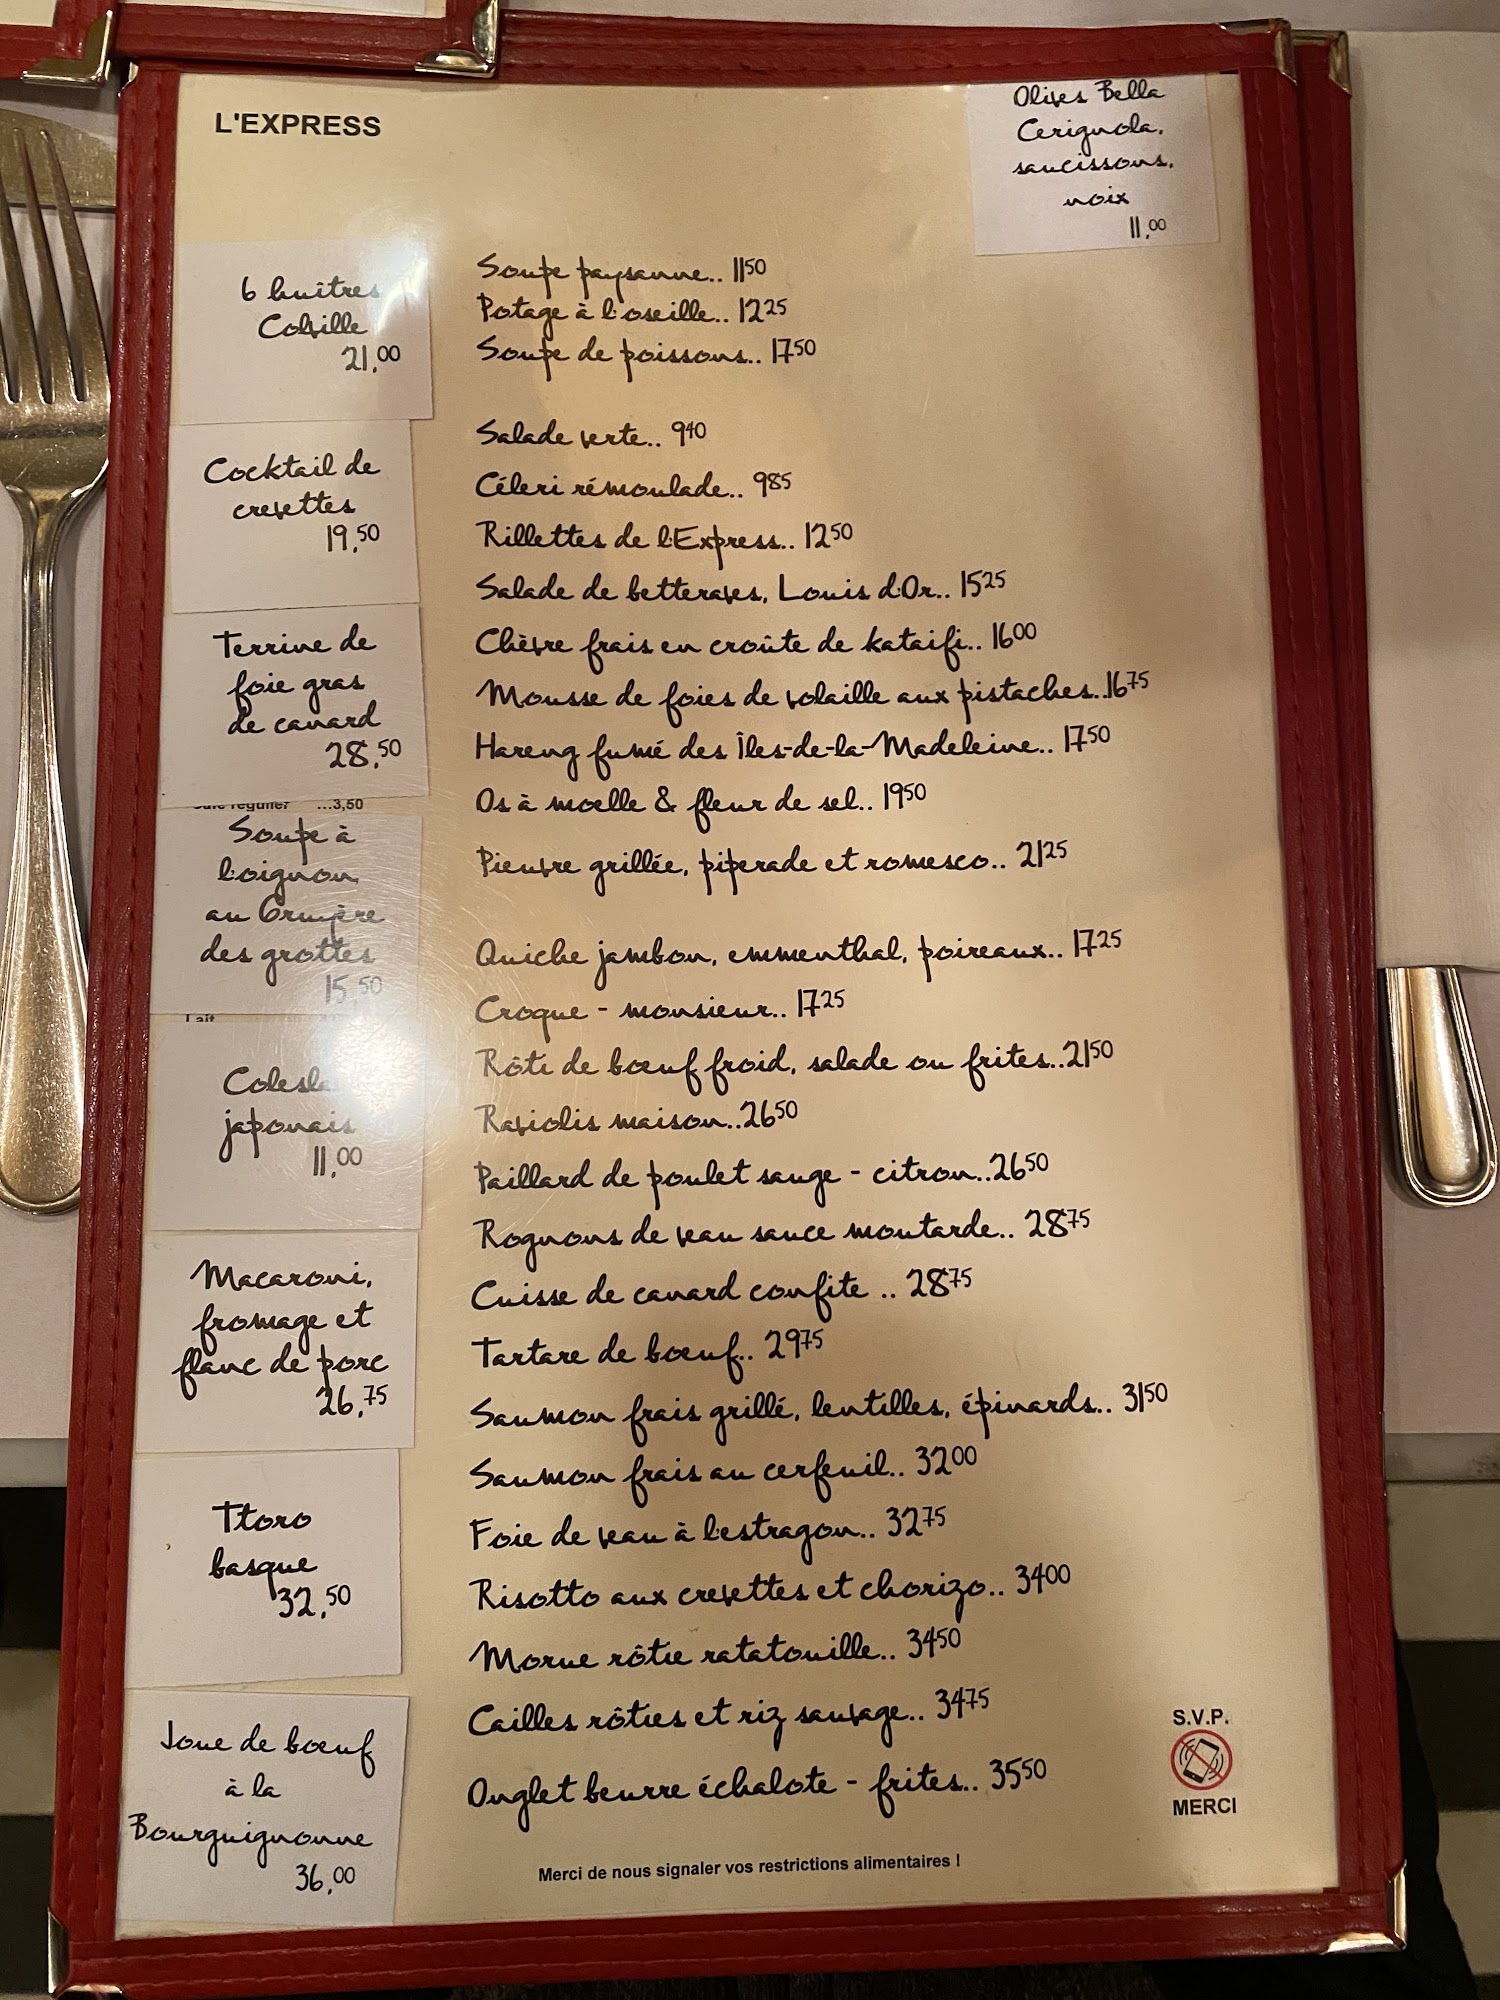 L'EXPRESS
Olives Bella
Cerignola,
saucissons,
noix
11,00
6 huîtres
Colville
21,00
Cocktail de
crevettes
19,50
Terrine de
foie gras
de canard
28,50
...3,50
Soupe à
l'oignon
au Gruyère
des grottes
15,50
Lait
japonais
11,00
Macaroni,
fromage et
flanc de porc
26,75
Ttoro
basque
32,50
Joue de boeuf
à la
Bourguignonne
36,00
Soupe paysanne.. 1150
Potage à l'oseille.. 1225
Soupe de poissons.. 1750
Salade verte.. 940
Céleri rémoulade.. 985
Rillettes de l'Express.. 1250
Salade de betteraves, Louis d'Or.. 1525
Chèvre frais en croûte de kataifi.. 1600
Mousse de foies de volaille aux pistaches..1675
Hareng fumé des Îles-de-la-Madeleine.. 1750
Os à moelle & fleur de sel.. 1950
Pieuvre grillée, piperade et romesco.. 2125
Quiche jambon, emmenthal, poireaux.. 1725
Croque - monsieur.. 1725
Rôti de bœuf froid, salade ou frites..2150
Raviolis maison..2650
Paillard de poulet sauge - citron..2650
Rognons de veau sauce moutarde.. 2875
Cuisse de canard confite .. 2875
Tartare de bœuf.. 2975
Saumon frais grillé, lentilles, épinards.. 3150
Saumon frais au cerfeuil.. 3200
Foie de veau à l'estragon.. 3275
Risotto aux crevettes et chorizo.. 3400
Morue rôtie ratatouille.. 3450
Cailles rôties et riz sauvage.. 3475
Onglet beurre échalote - frites.. 3550
S.V.P.
MERCI
Merci de nous signaler vos restrictions alimentaires !